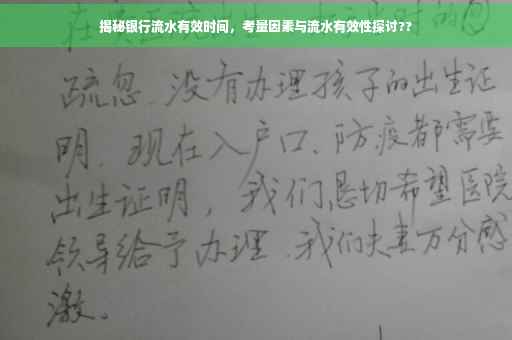 揭秘银行流水有效时间，考量因素与流水有效性探讨??
疏忽、没有办理孩子的出生证
明、现在入户口、防疫都需要
出生证明，我们恳切希望医院
领导给予办理、我们夫妻万分感
激。